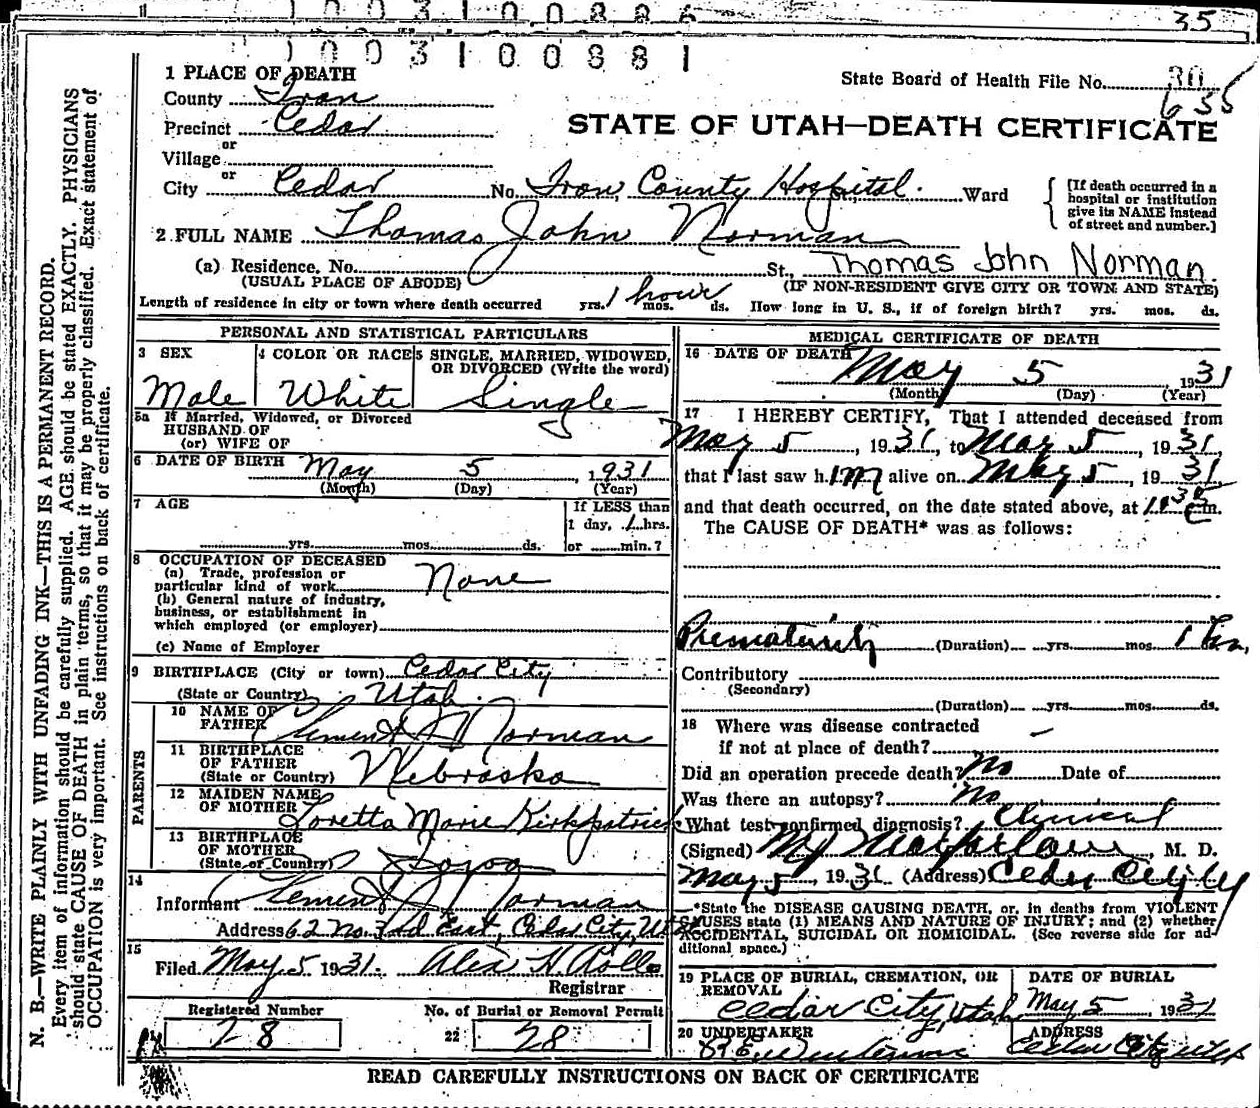 1003100886
35
1003100881
1 PLACE OF DEATH
State Board of Health File No. 30
635
County Iron
Precinct Cedar
STATE OF UTAH—DEATH CERTIFICATE
or
Village
or
City Cedar No. Iron County Hospital. St., Ward
[If death occurred in a hospital or institution give its NAME instead of street and number.]
2 FULL NAME Thomas John Norman
(a) Residence. No. St., Thomas John Norman
(USUAL PLACE OF ABODE) (IF NON-RESIDENT GIVE CITY OR TOWN AND STATE)
Length of residence in city or town where death occurred yrs. 1 hour mos. ds. How long in U. S., if of foreign birth? yrs. mos. ds.
PERSONAL AND STATISTICAL PARTICULARS
3 SEX 4 COLOR OR RACE 5 SINGLE, MARRIED, WIDOWED,
OR DIVORCED (Write the word)
Male White Single
5a If Married, Widowed, or Divorced
HUSBAND OF
(or) WIFE OF
6 DATE OF BIRTH May 5, 1931
(Month) (Day) (Year)
7 AGE If LESS than
1 day, 1 hrs.
yrs. mos. ds. or min.?
8 OCCUPATION OF DECEASED
(a) Trade, profession or
particular kind of work None
(b) General nature of industry,
business, or establishment in
which employed (or employer)
(c) Name of Employer
9 BIRTHPLACE (City or town) Cedar City
(State or Country) Utah.
PARENTS
10 NAME OF
FATHER Clement J Norman
11 BIRTHPLACE
OF FATHER
(State or Country) Nebraska
12 MAIDEN NAME
OF MOTHER Loretta Marie Kirkpatrick
13 BIRTHPLACE
OF MOTHER
(State or Country) Iowa
14
Informant Clement J Norman
Address 62 No. 3rd East, Cedar City, Utah
15
Filed May 5 1931. Alex H Rollo
Registrar
Registered Number No. of Burial or Removal Permit
28 22 28
MEDICAL CERTIFICATE OF DEATH
16 DATE OF DEATH
May 5, 1931
(Month) (Day) (Year)
17 I HEREBY CERTIFY, That I attended deceased from
May 5, 1931, to May 5, 1931,
that I last saw him alive on May 5, 1931
and that death occurred, on the date stated above, at m.
The CAUSE OF DEATH* was as follows:
Prematurity (Duration) yrs. mos. 1 hr.
Contributory
(Secondary)
(Duration) yrs. mos. ds.
18 Where was disease contracted
if not at place of death? —
Did an operation precede death? No Date of
Was there an autopsy? no
What test confirmed diagnosis? Clinical
(Signed) MJ Macfarlane, M. D.
May 5, 1931 (Address) Cedar City
*State the DISEASE CAUSING DEATH, or, in deaths from VIOLENT
CAUSES state (1) MEANS AND NATURE OF INJURY; and (2) whether
ACCIDENTAL, SUICIDAL OR HOMICIDAL. (See reverse side for ad-
ditional space.)
19 PLACE OF BURIAL, CREMATION, OR
REMOVAL
Cedar City, Utah
DATE OF BURIAL
May 5, 1931
20 UNDERTAKER ADDRESS
Cedar City Utah
READ CAREFULLY INSTRUCTIONS ON BACK OF CERTIFICATE
N. B.—WRITE PLAINLY WITH UNFADING INK—THIS IS A PERMANENT RECORD.
Every item of information should be carefully supplied. AGE should be stated EXACTLY. PHYSICIANS
should state CAUSE OF DEATH in plain terms, so that it may be properly classified. Exact statement of
OCCUPATION is very important. See instructions on back of certificate.